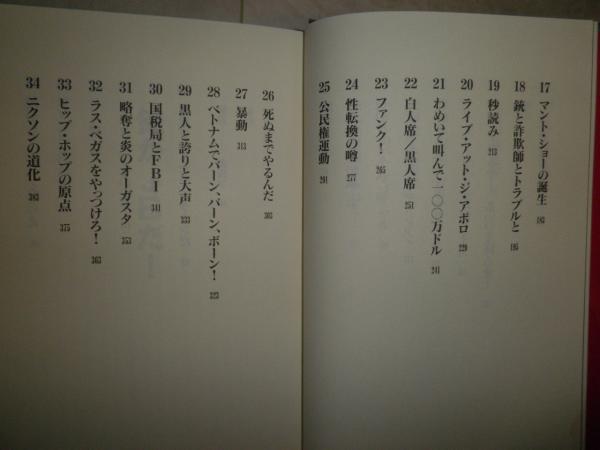 17 マント・ショーの誕生 183
18 銃と詐欺師とトラブルと 195
19 秒読み 213
20 ライブ・アット・ジ・アポロ 229
21 わめいて叫んで一〇〇万ドル 241
22 白人席／黒人席 251
23 ファンク！ 265
24 性転換の噂 277
25 公民権運動 291
26 死ぬまでやるんだ 303
27 暴動 313
28 ベトナムでバーン、バーン、ボーン！ 325
29 黒人と誇りと大声 333
30 国税局とFBI 341
31 略奪と炎のオーガスタ 353
32 ラス・ベガスをやっつけろ！ 363
33 ヒップ・ホップの原点 375
34 ニクソンの道化 383